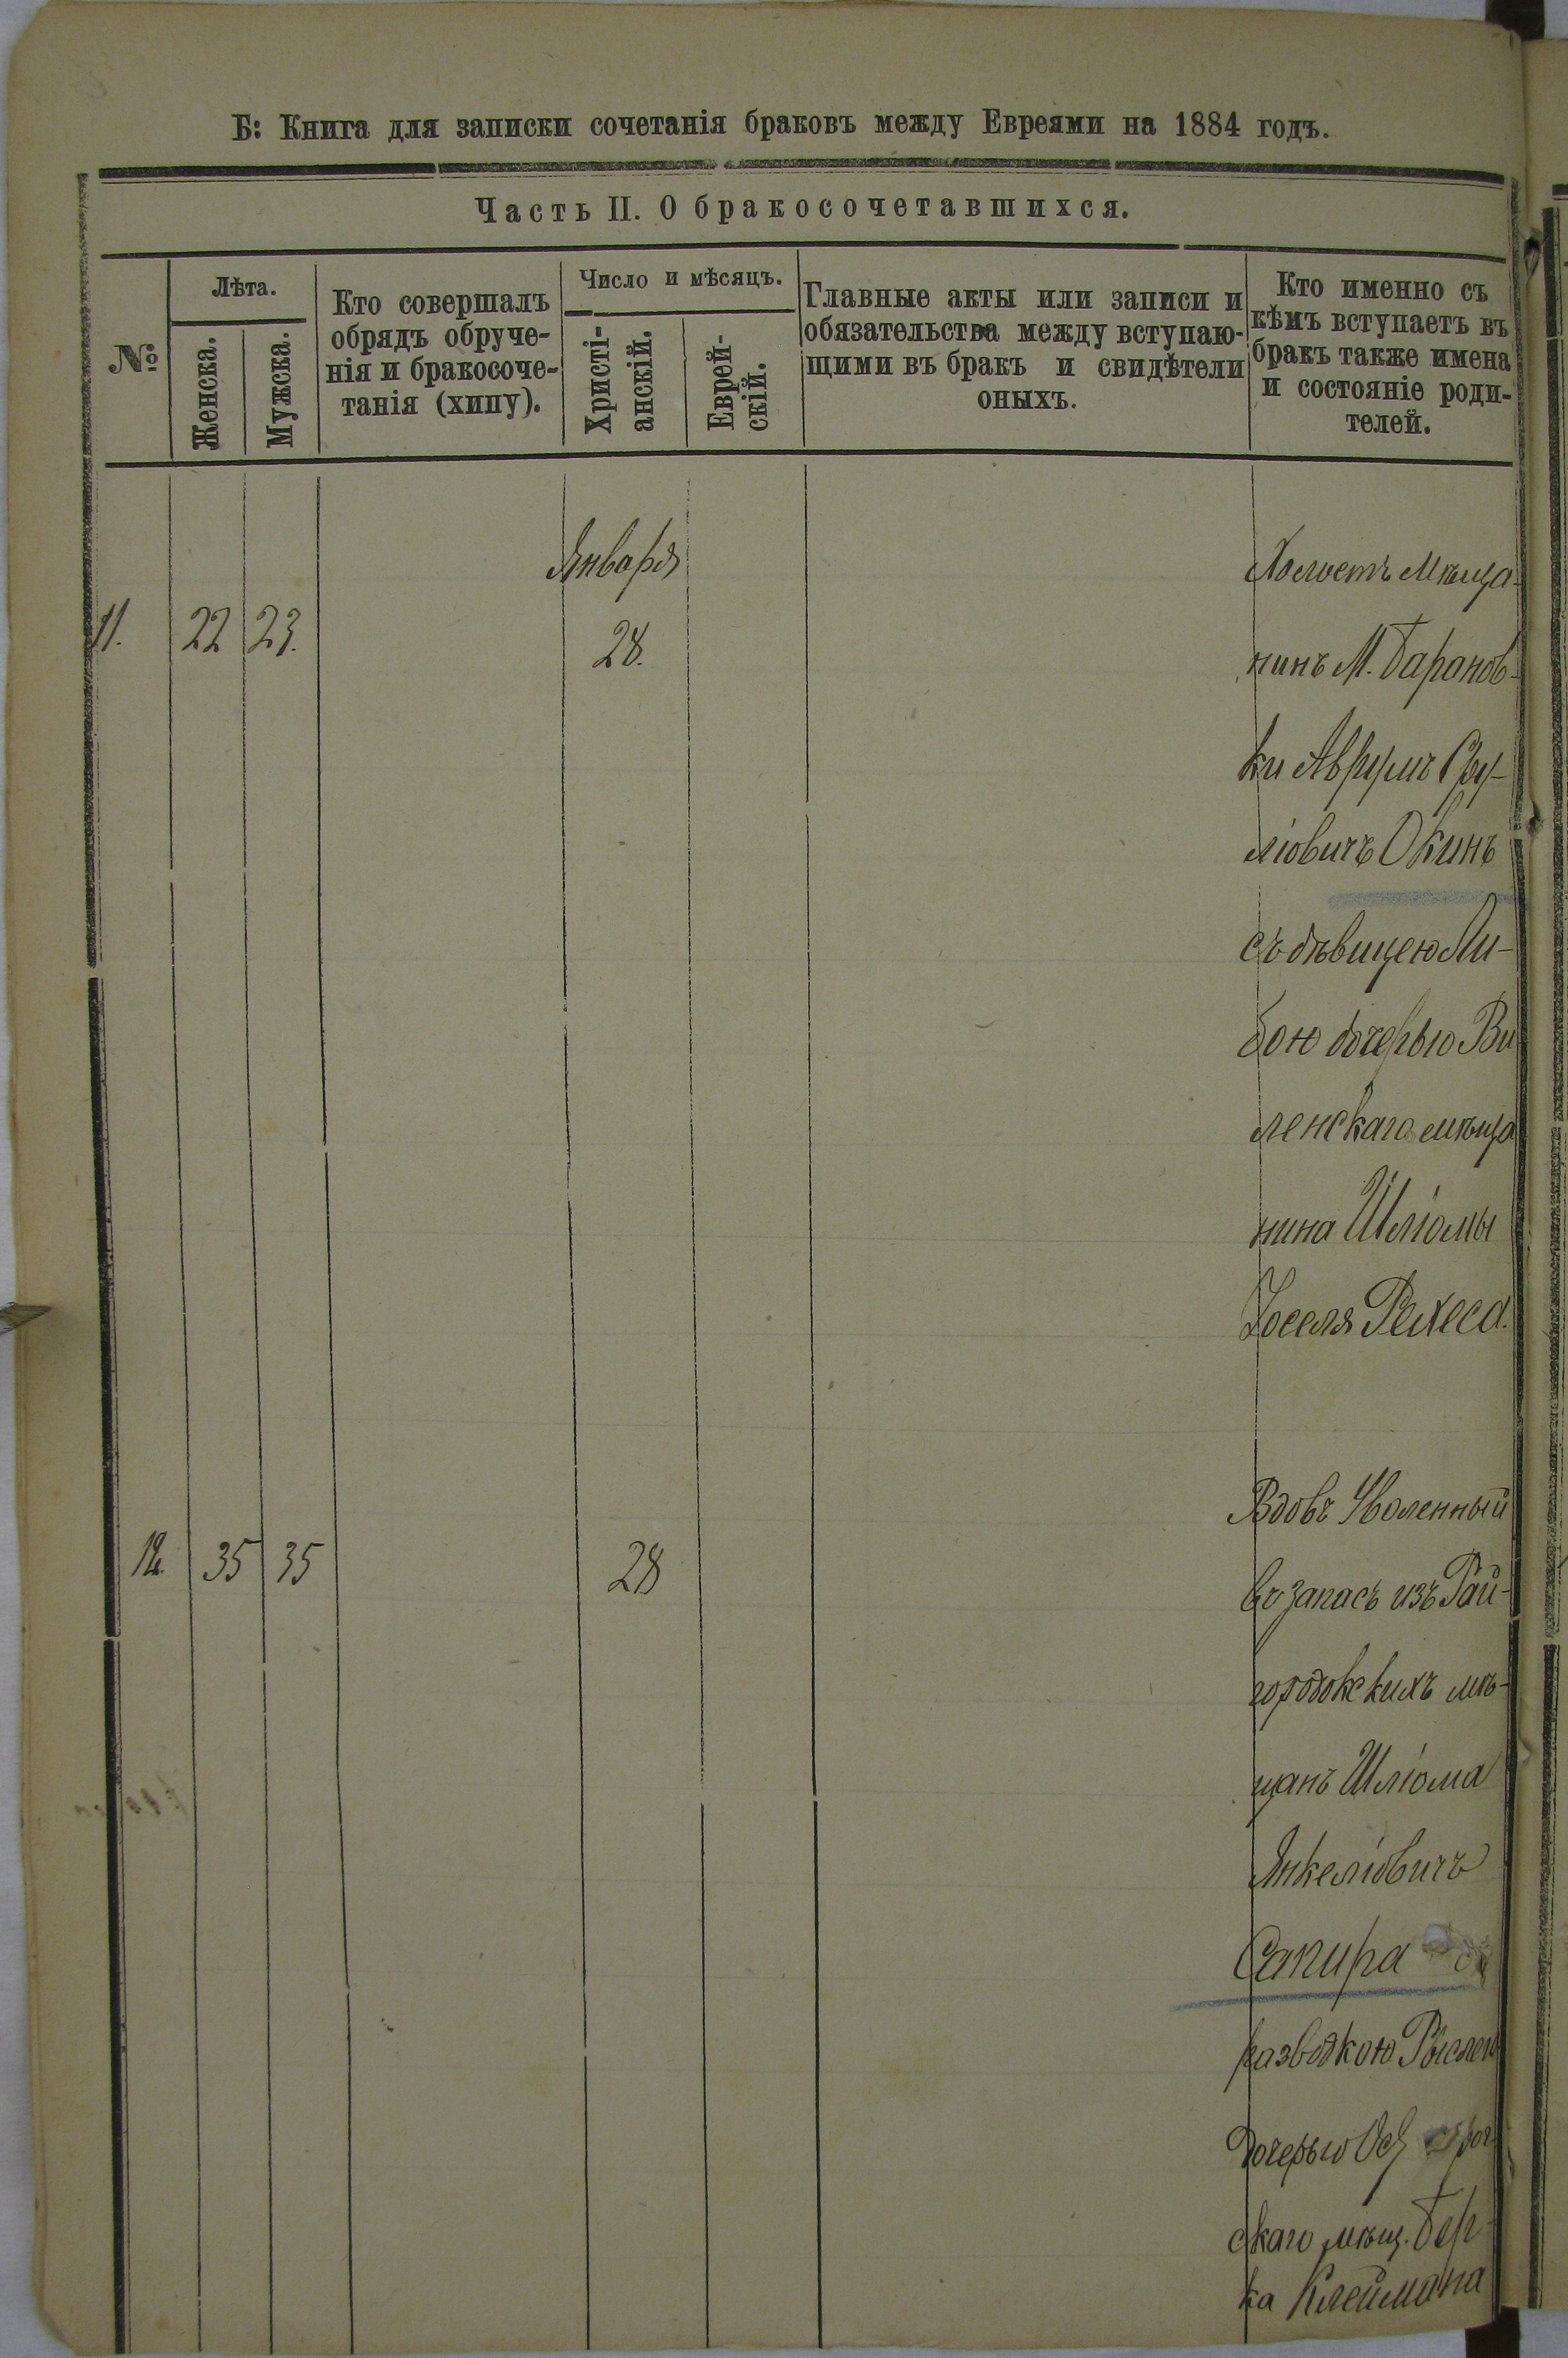 Б: Книга для записки сочетанія браковъ между Евреями на 1884 годъ.
Часть II. О бракосочетавшихся.
№
Лѣта.
Женска.
Мужска.
Кто совершалъ
обрядъ обруче-
нія и бракосоче-
танія (хипу).
Число и мѣсяцъ.
Христі-
анскій.
Еврей-
скій.
Главные акты или записи и
обязательства между вступаю-
щими въ бракъ и свидѣтели
оныхъ.
Кто именно съ
кѣмъ вступаетъ въ
бракъ также имена
и состояніе роди-
телей.
Января
11. 22 23. 28.
Холостъ Мѣща-
нинъ М. Баранов-
ки Аврумъ Сру-
ліовичъ Окинь
съ дѣвицею Ли-
бою дочерью Ви
ленскаго мѣща
нина Шліомы
Іоселя Рехеса.
12. 35 35 28
Вдовъ Уволенный
въ запасъ изъ Рай-
городокскихъ мѣ-
щанъ Шліома
Янкеліовичъ
Сапира
разводкою Рыслею
дочерью
скаго мѣщ. Бер-
ка Клеймана